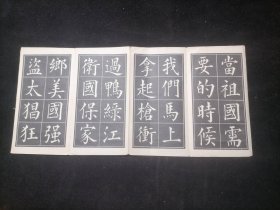 當祖國需
要的時候
我們馬上
拿起槍衝
過鴨綠江
衛國保家
鄉美國强
盜太猖狂